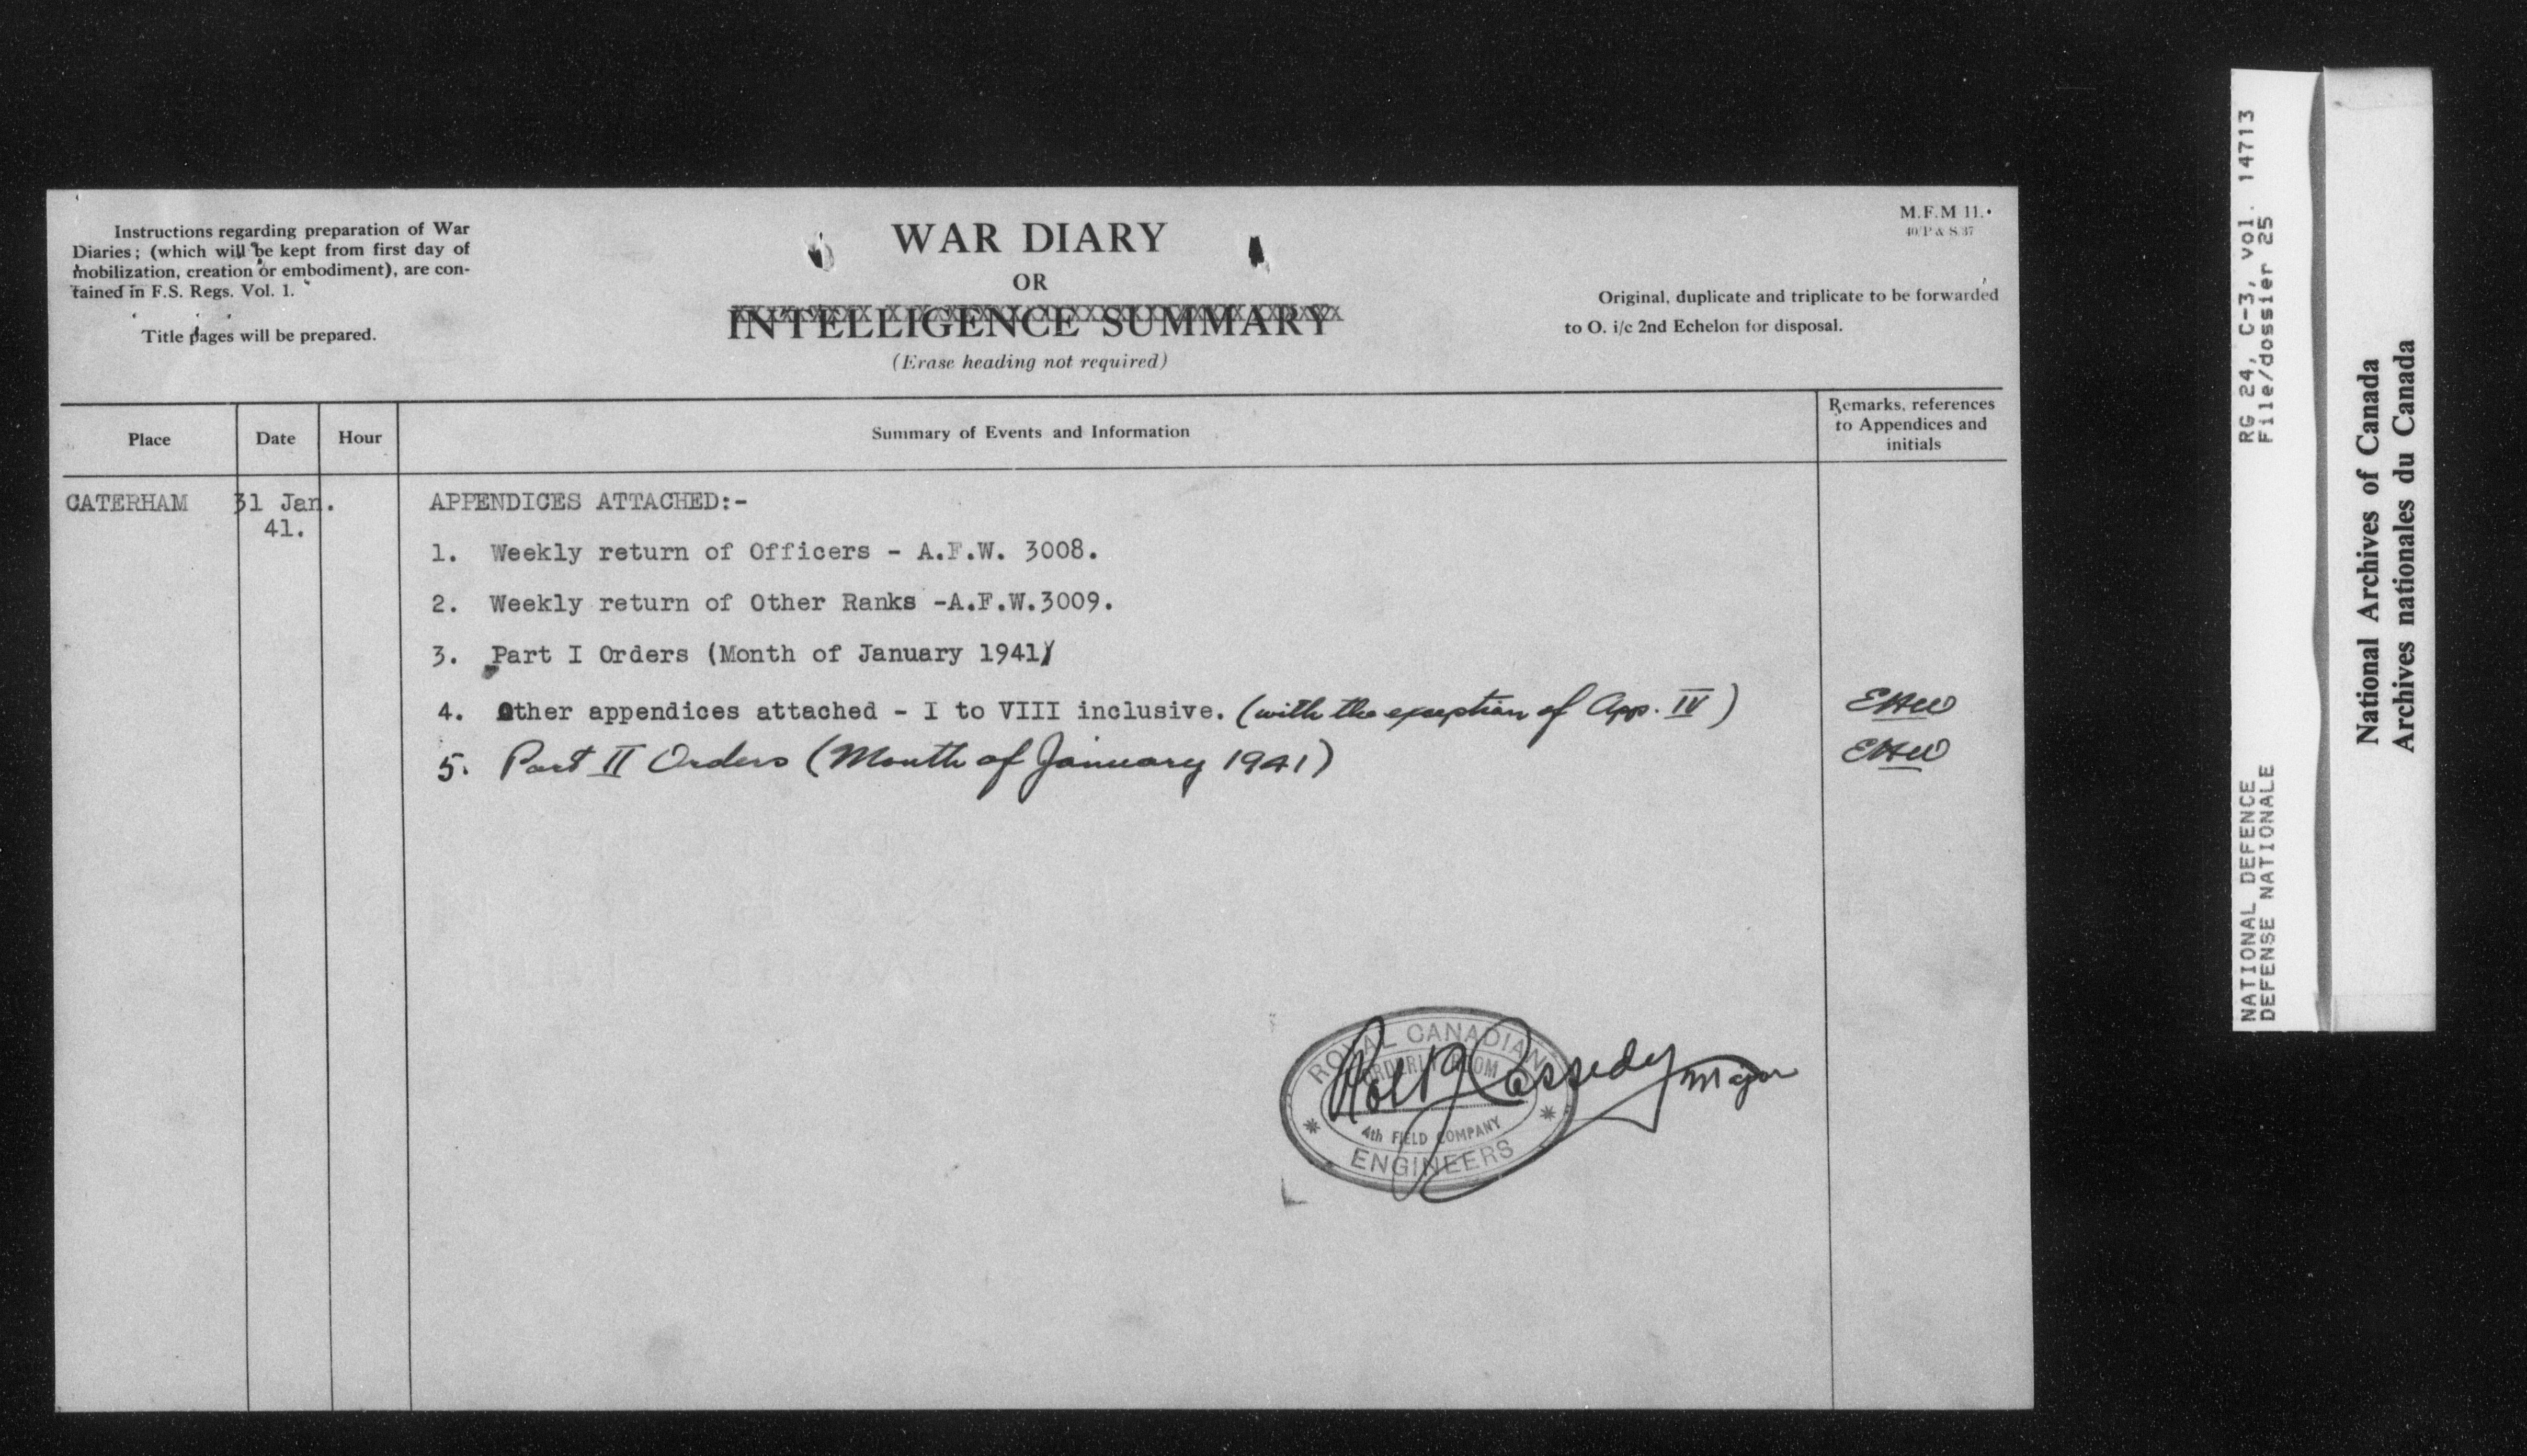 Instructions regarding preparation of War
Diaries; (which will be kept from first day of
mobilization, creation or embodiment), are con-
tained in F.S. Regs. Vol. 1.
Title pages will be prepared.
WAR DIARY
OR
INTELLIGENCE SUMMARY
(Erase heading not required)
M.F.M 11.
40/P & S/37
Original, duplicate and triplicate to be forwarded
to O. i/c 2nd Echelon for disposal.
Place
Date
Hour
Summary of Events and Information
Remarks, references
to Appendices and
initials
CATERHAM
31 Jan.
41.
APPENDICES ATTACHED:-
1. Weekly return of Officers - A.F.W. 3008.
2. Weekly return of Other Ranks -A.F.W.3009.
3. Part I Orders (Month of January 1941)
4. Other appendices attached - I to VIII inclusive. (with the exception of App. IV)
5. Part II Orders (Month of January 1941)
ROYAL CANADIAN
ORDERLY ROOM
4th FIELD COMPANY
ENGINEERS
Cassedy Major
RG 24, C-3, vol. 14713
File/dossier 25
NATIONAL DEFENCE
DEFENSE NATIONALE
National Archives of Canada
Archives nationales du Canada